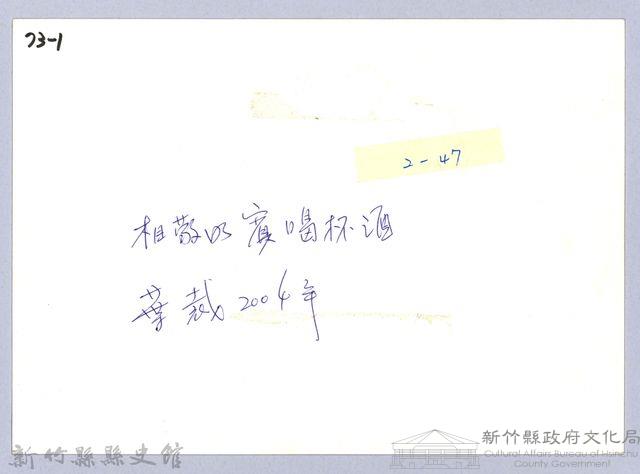 73-1
2-47
相敬如賓喝杯酒
葉裁 2004年
新竹縣縣史館
新竹縣政府文化局
Cultural Affairs Bureau of Hsinchu
County Government